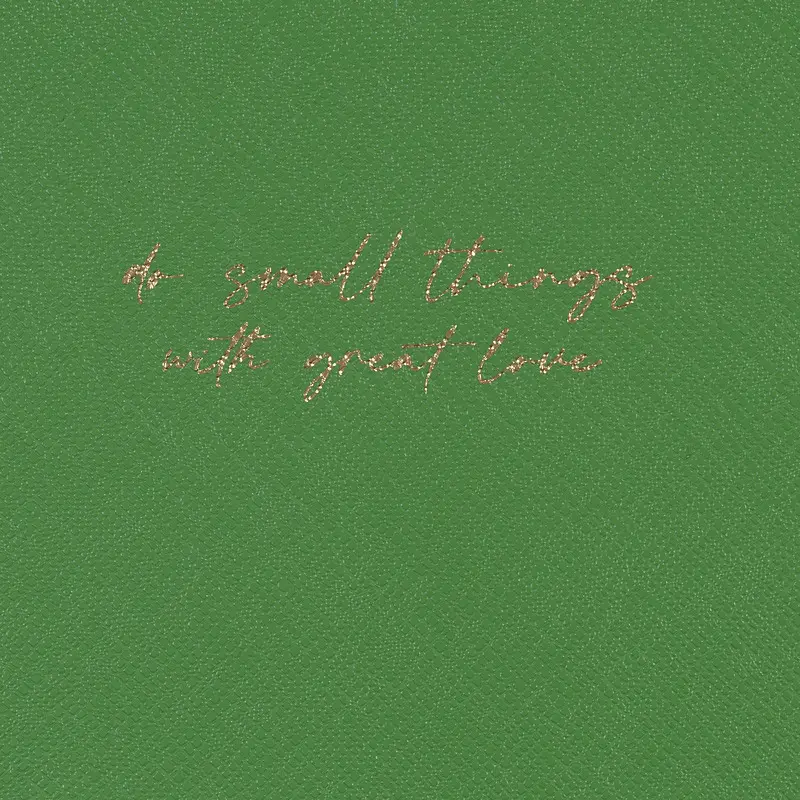 do small things
with great love